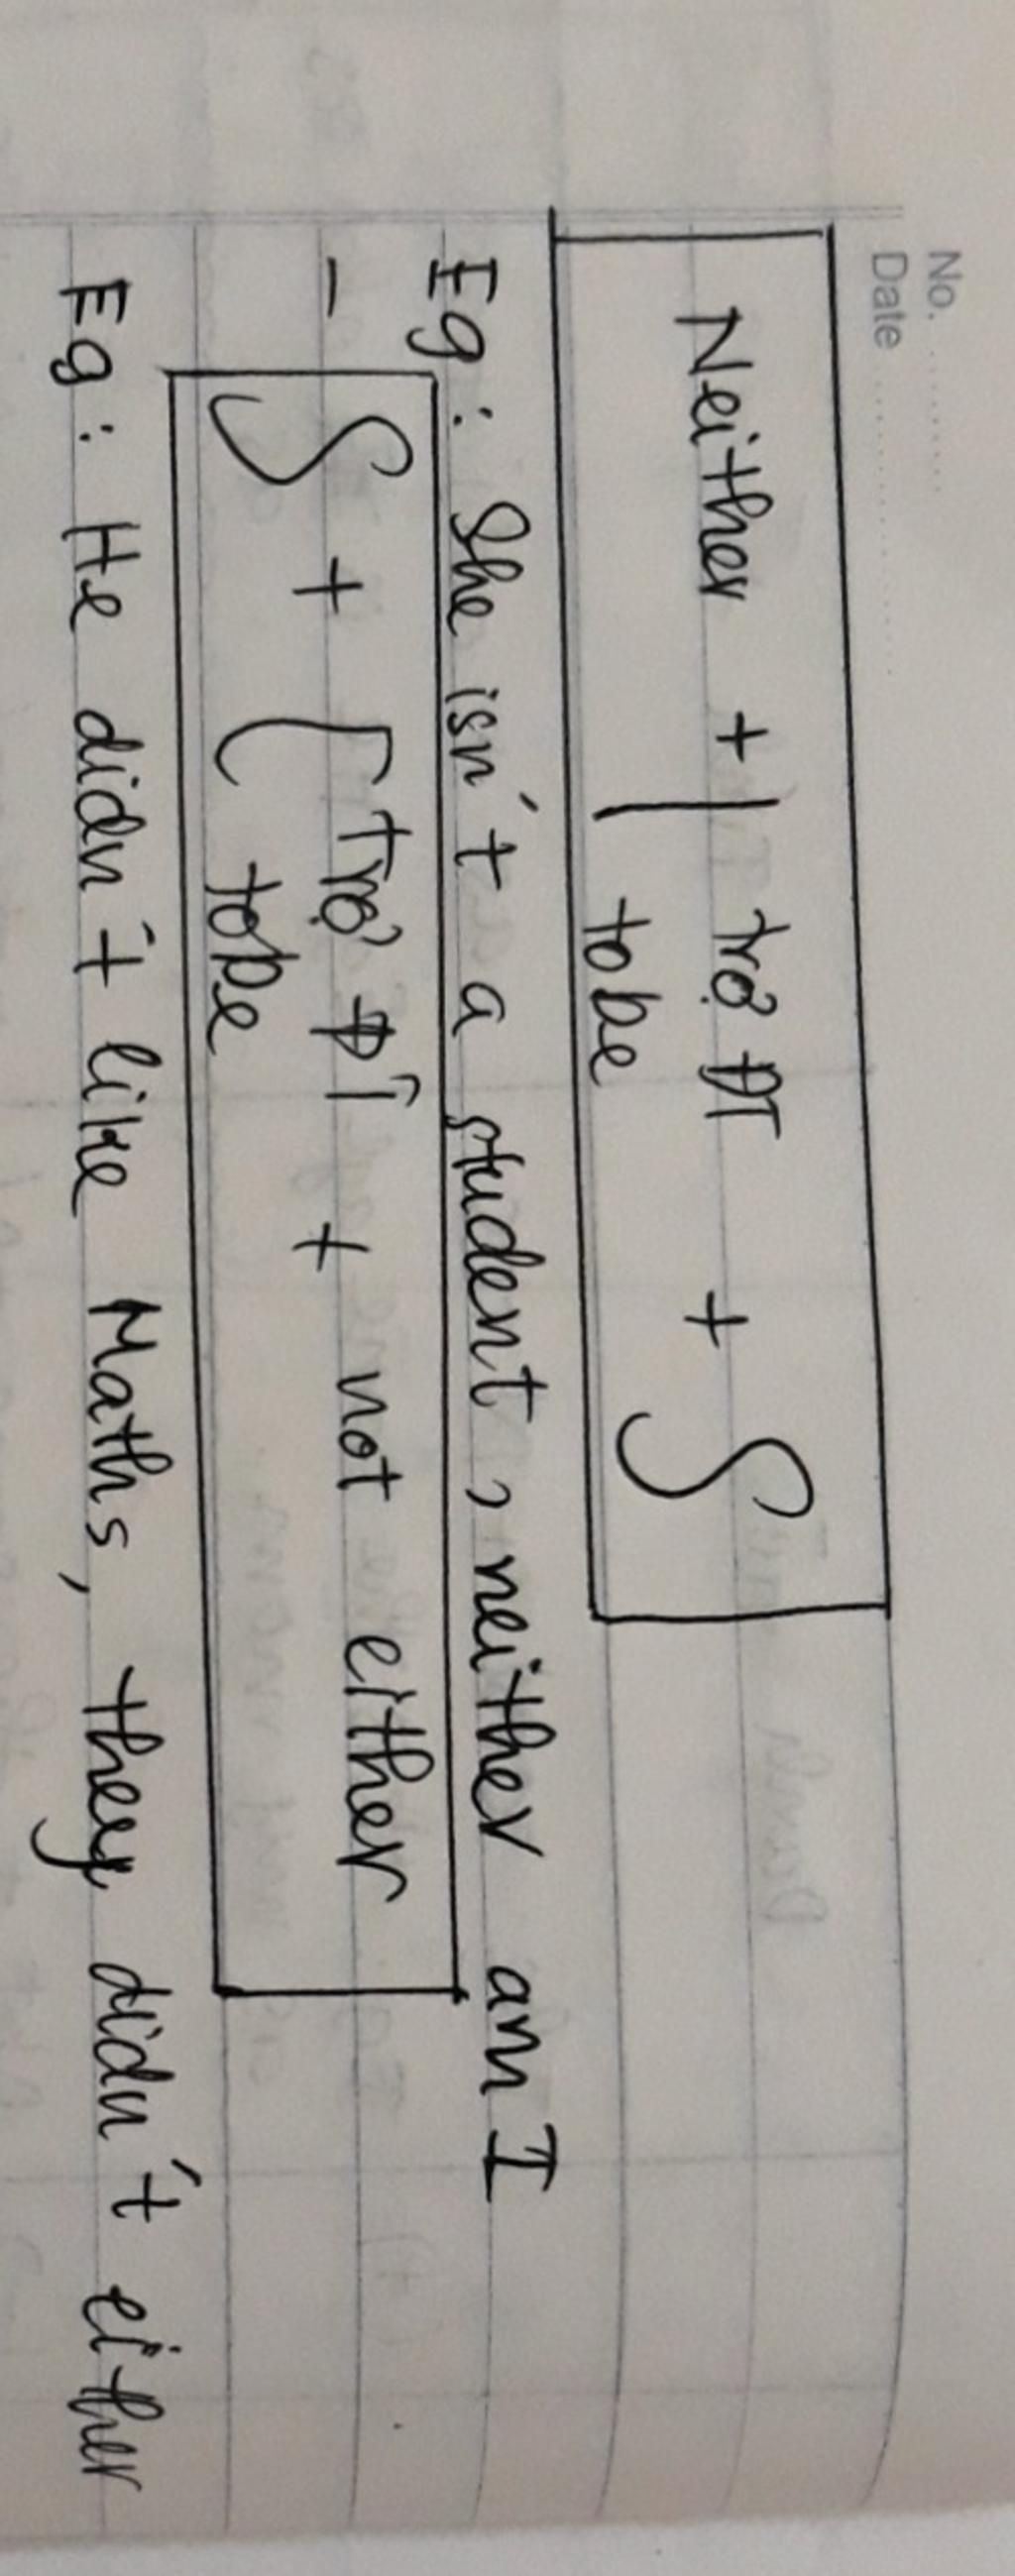 No. ..........
Date ....................
Neither + | trợ ĐT + S
to be
Eg : She isn't a student, neither am I
- S + [ trợ ĐT + not either
tobe
Eg : He didn't like Maths, they didn't either